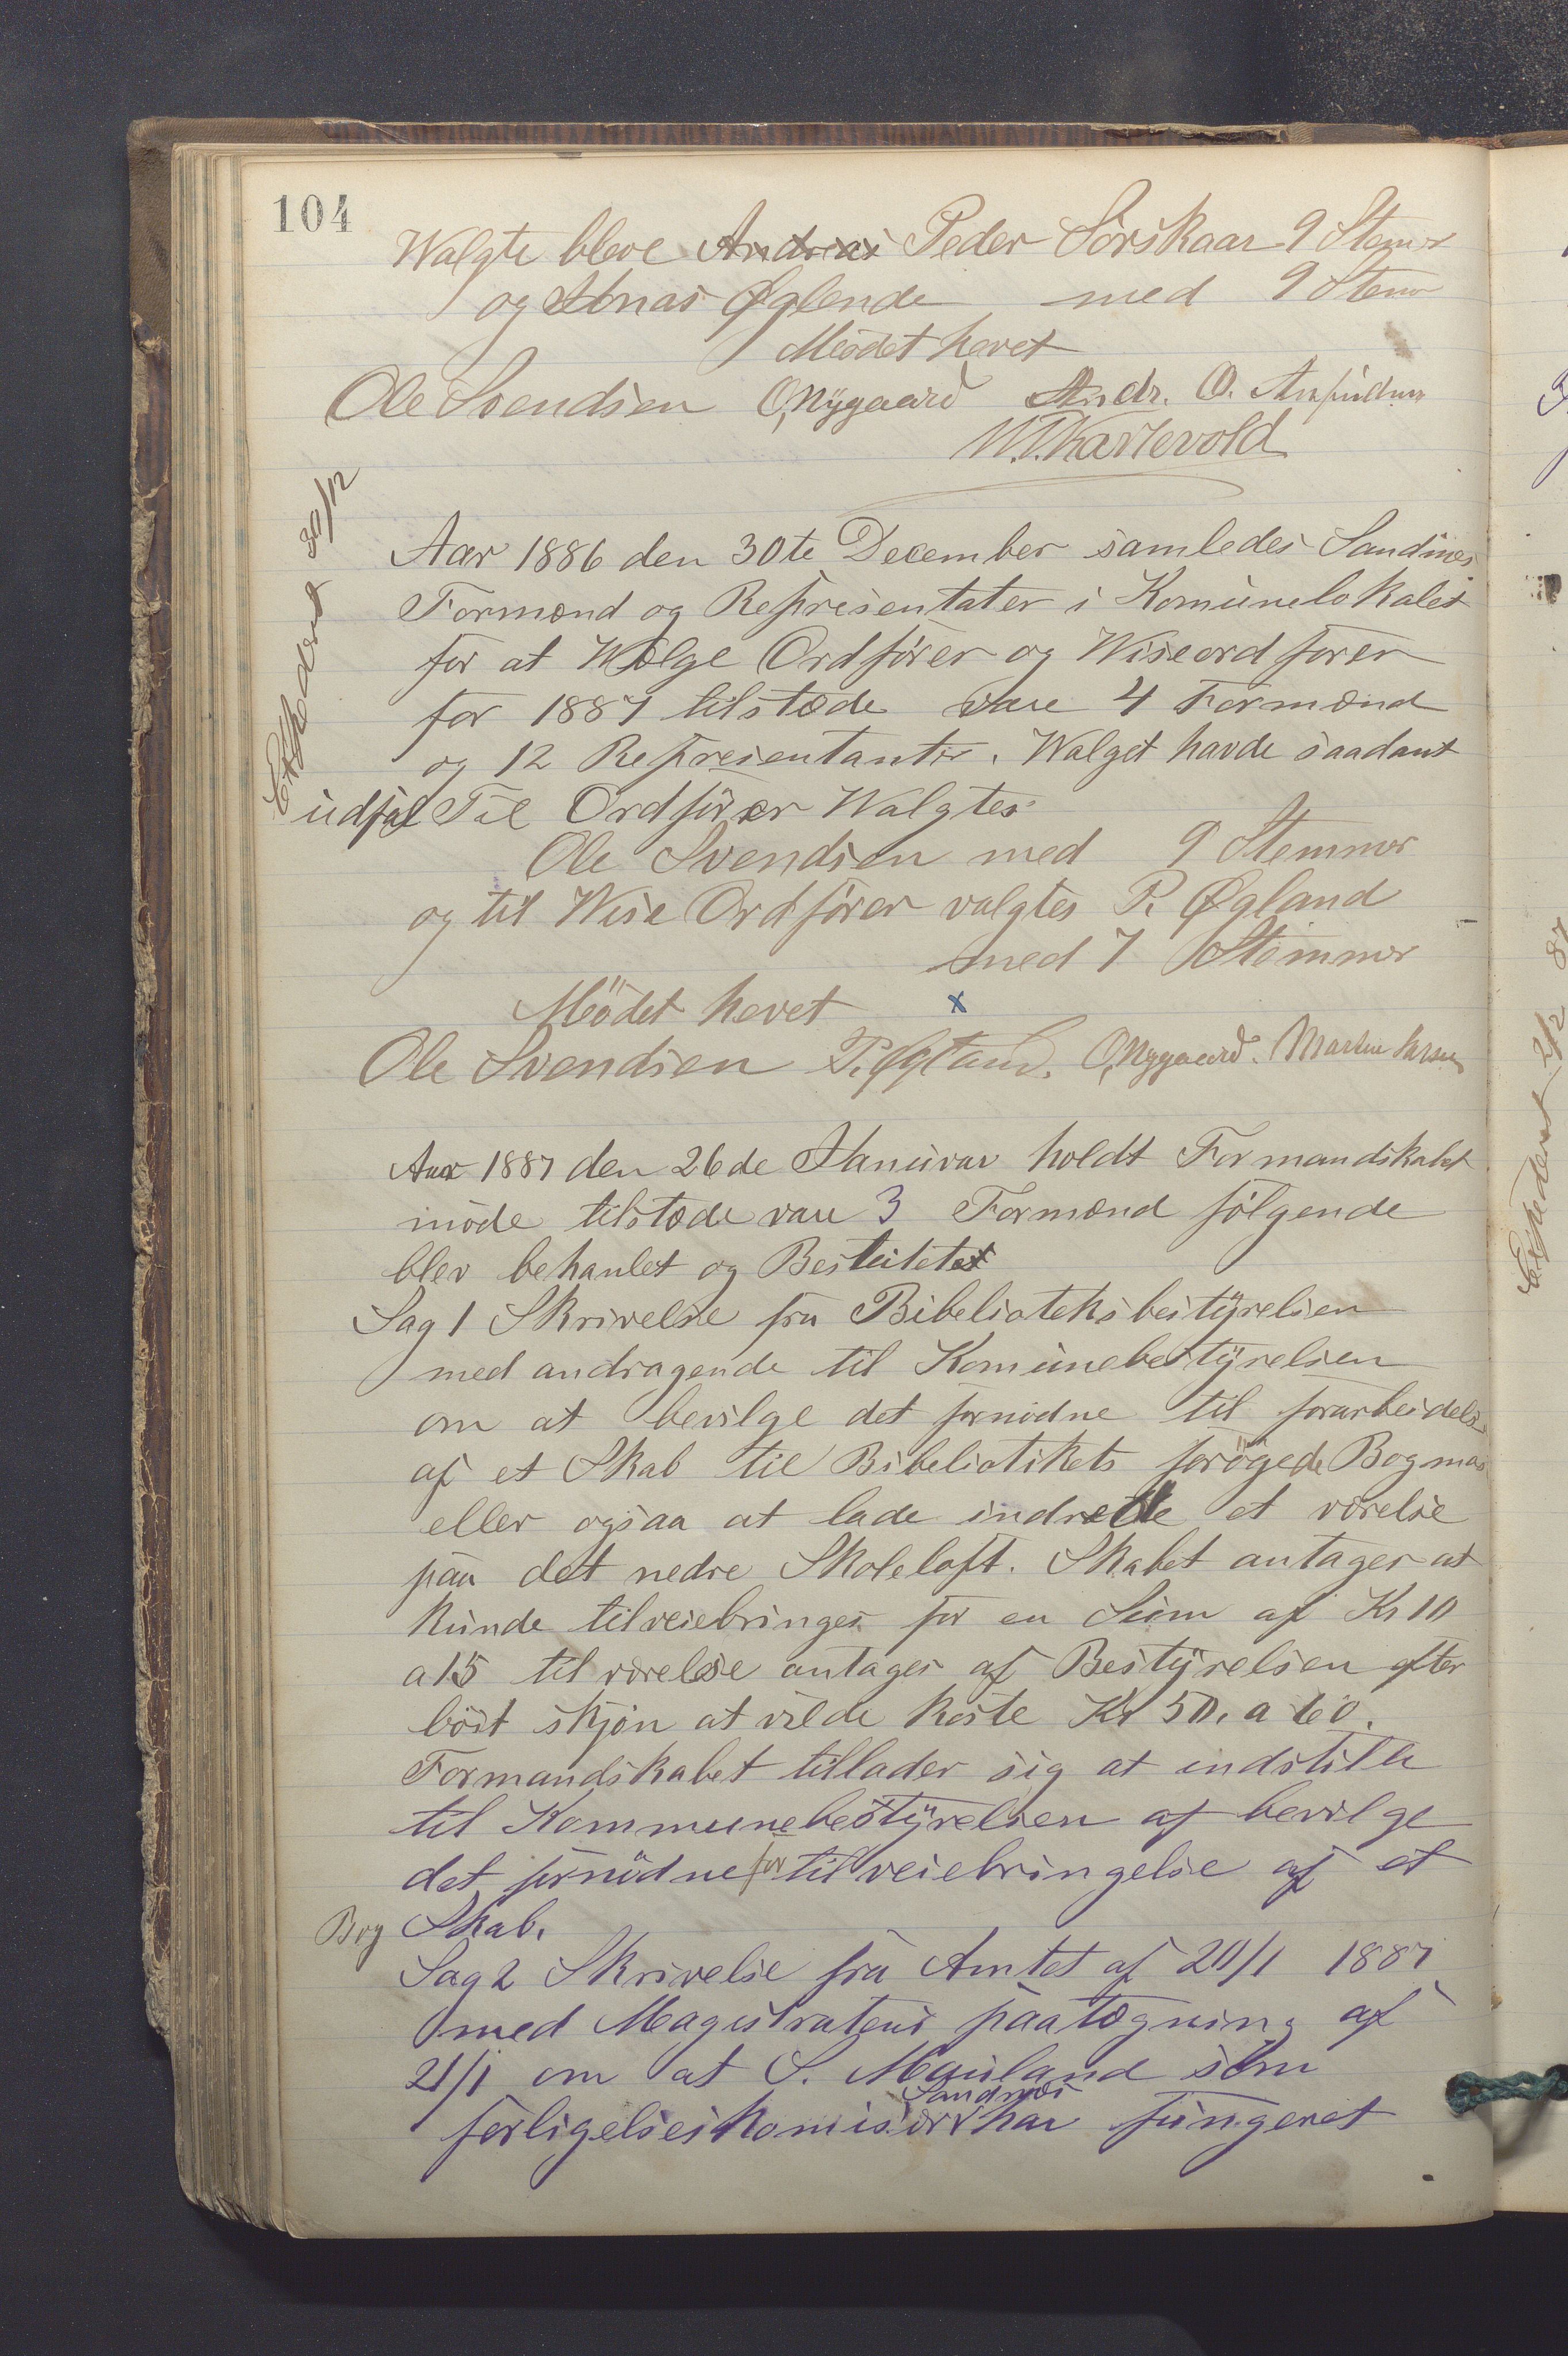 104
Walgte bleve Andreas Peder Sörskaar 9 Stemr
og Jonas Øglende med 9 Stemr
Mödet hevet
Ole Svendsen O, Nygaard Andr. O.
Aar 1886 den 30te December samledes Sandnes
Formænd og Represientater i Komunelokalet
for at Wælge Ordförer og Wiseordförer
for 1887 tilstæde vare 4 Formænd
og 12 Represientanter. Walget havde saadant
udfal Til Ordförer Walgtes
Ole Svendsen med 9 Stemmer
og til Wise Ordförer valgtes P. Øgland
med 7 Stemmer
Mödet hevet x
Ole Svendsen P. Øgland. O, Nygaard. Martin Larsen
Expederet 30/12
Aar 1887 den 26de Januvar holdt Formandskabet
möde tilstæde vare 3 Formænd fölgende
blev behanlet og Beslutetet
Sag 1 Skrivelse fra Bibelioteksbestyrelsen
med andragende til Komunebestyrelsen
om at bevilge det fornödne til forarbeidelse
af et Skab til Bibeliotikets forögede Bogmas
eller ogsaa at lade indrette et værelse
paa det nedre Skoleloft. Skabet antages at
kunde tilveiebringes for en Sum af Kr 10
a 15 til værelse antages af Bestyrelsen efter
böst skjön at vilde koste Kr 50. a 60.
Formandskabet tillader sig at indstille
til Kommunebestyrelsen at bevilge
det fornödne for tilveiebringelse af et
Bog Skab.
Sag 2 Skrivelse fra Amtet af 20/1 1887
med Magistratens paategning af
21/1 om at S. Mauland som
Sandnæs
forligelseskomisær har fungeret
Expederet 2/2 87